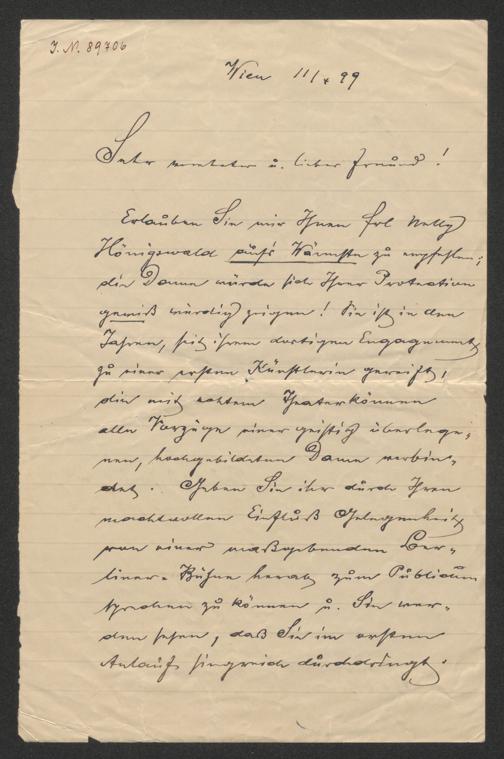 I. N. 89706
Wien 11/x 99
Sehr verehrter u. lieber Freund!
Erlauben Sie mir Ihnen Frl Nelly
Hönigswald auf's Wärmste zu empfehlen;
die Dame würde sich Ihrer Protection
gewiß würdig zeigen! Sie ist in den
Jahren, seit ihrem dortigen Engagement
zu einer ersten Künstlerin gereift,
die mit echtem Theaterkönnen
alle Vorzüge einer geistig überlege-
nen, hochgebildeten Dame verbin-
det. Geben Sie ihr durch Ihren
machtvollen Einfluß Gelegenheit
von einer maßgebenden Ber-
liner-Bühne herab zum Publicum
sprechen zu können u. Sie wer-
den sehen, daß Sie im ersten
Anlauf siegreich durchdringt.